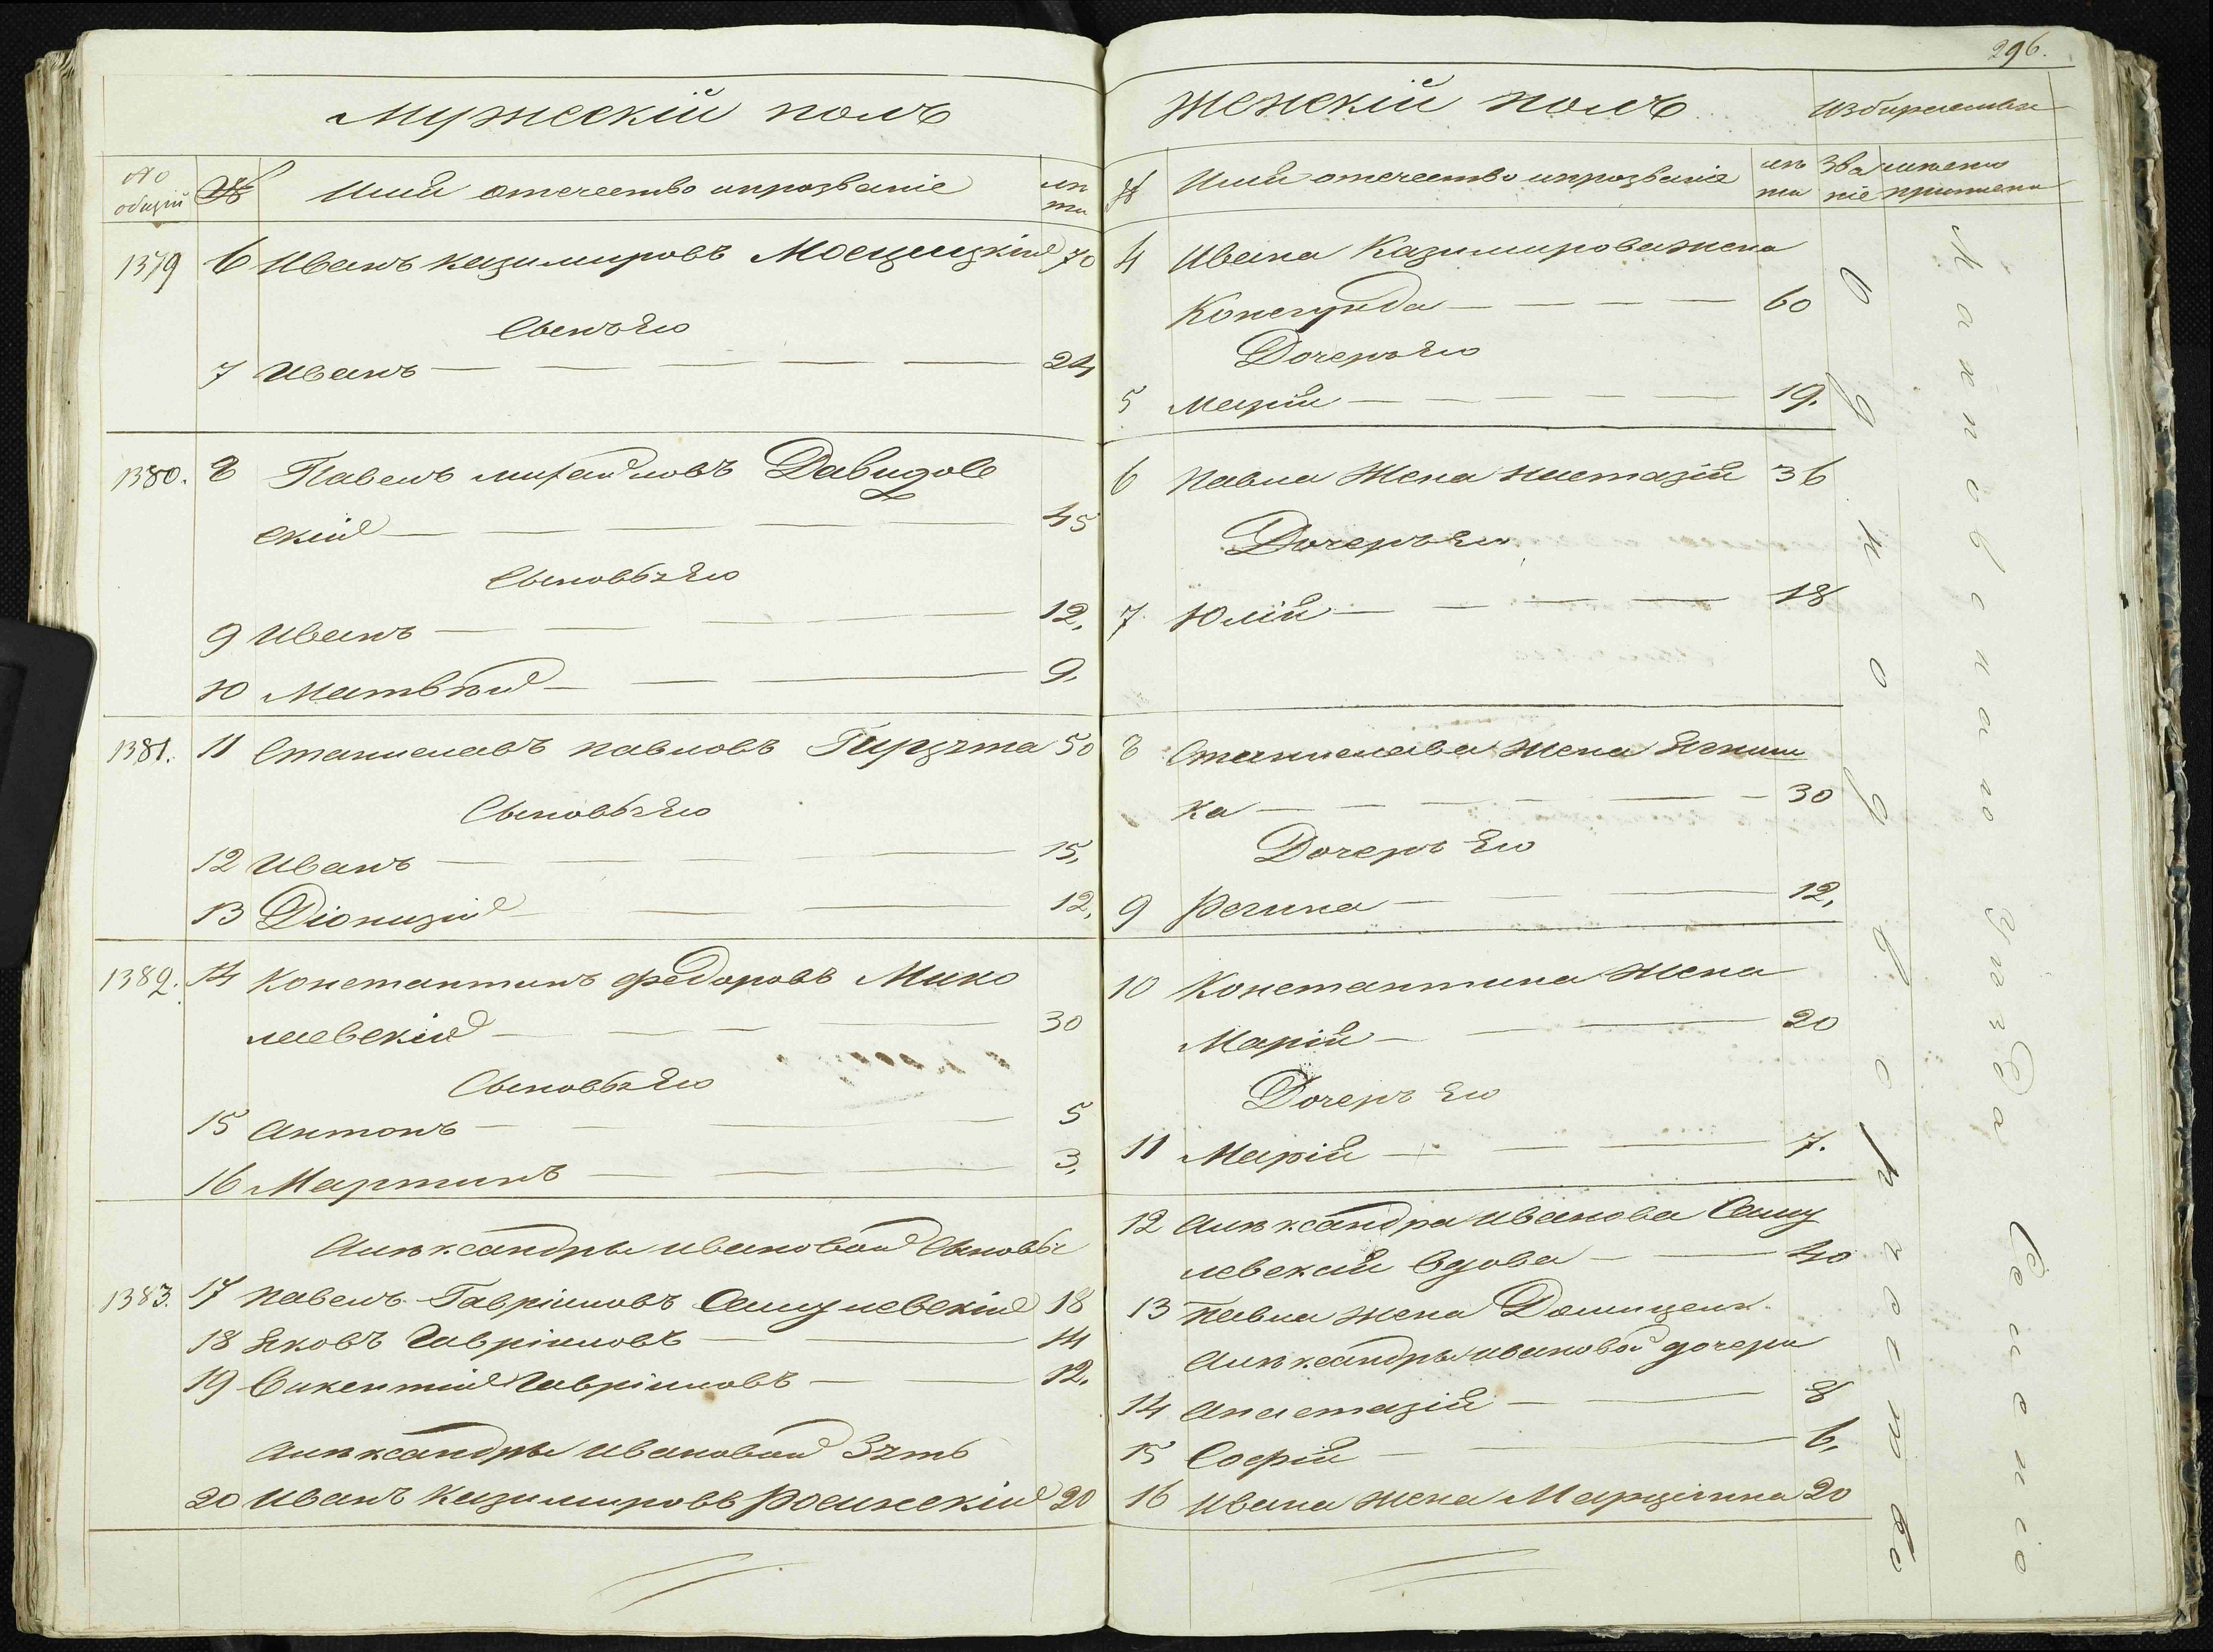 296.
Мужескій полъ
№ общій
№
Имя отечество ипрозваніе
лѣ
та
1379 6 Иванъ казимировъ Мосцицкій 70
Сынъ Его
7 Иванъ — — — — 24
1380. 8 Павелъ михайловъ Давидов
скій — — — — 45
Сыновья Его
9 Иванъ — — — — 12,
10 Матвѣй — — — 9.
1381. 11 Станиславъ павловъ Гирдзта 50
Сыновья Его
12 Иванъ — — — 15,
13 Діонизій — — — 12,
1382. 14 Константинъ федоровъ Мико
лаевскій — — — — 30
Сыновья Его
15 Антонъ — — — 5
16 Мартинъ — — — 3,
Алѣксандры ивановой Сыновья
1383. 17 павелъ Гавріиловъ Самулевскій 18
18 Яковъ Гавріиловъ — — 14
19 Викентій Гавріиловъ — — 12.
Алѣксандры Ивановой Зять
20 Иванъ Казимировъ Росинскій 20
Женскій полъ
Избираетъ
№
Имя отечество ипрозваніе
лѣ
та
Зва
ніе
4 Ивана Казимирова жена
Конегунда — — — — 60
Дочерь Его
5 Марія — — — — 19.
6 Павла Жена Настазія 36
Дочерь Ег
7. Юлія — — — — 18
8 Станислава Жена Ягниш
ка — — — — — 30
Дочерь Его
9 Регина — — — 12,
10 Константина Жена
Марія — — — 20
Дочерь Его
11 Марія — — — 7.
12 Алѣксандра иванова Саму
левская Вдова — — 40
13 павла жена Домицеля.
Алѣксандры ивановой дочери
14 Анастазія — — 8
15 Софія — — 6,
16 Ивана жена Марціянна 20
Однодворчество
Уѣзда Селенію